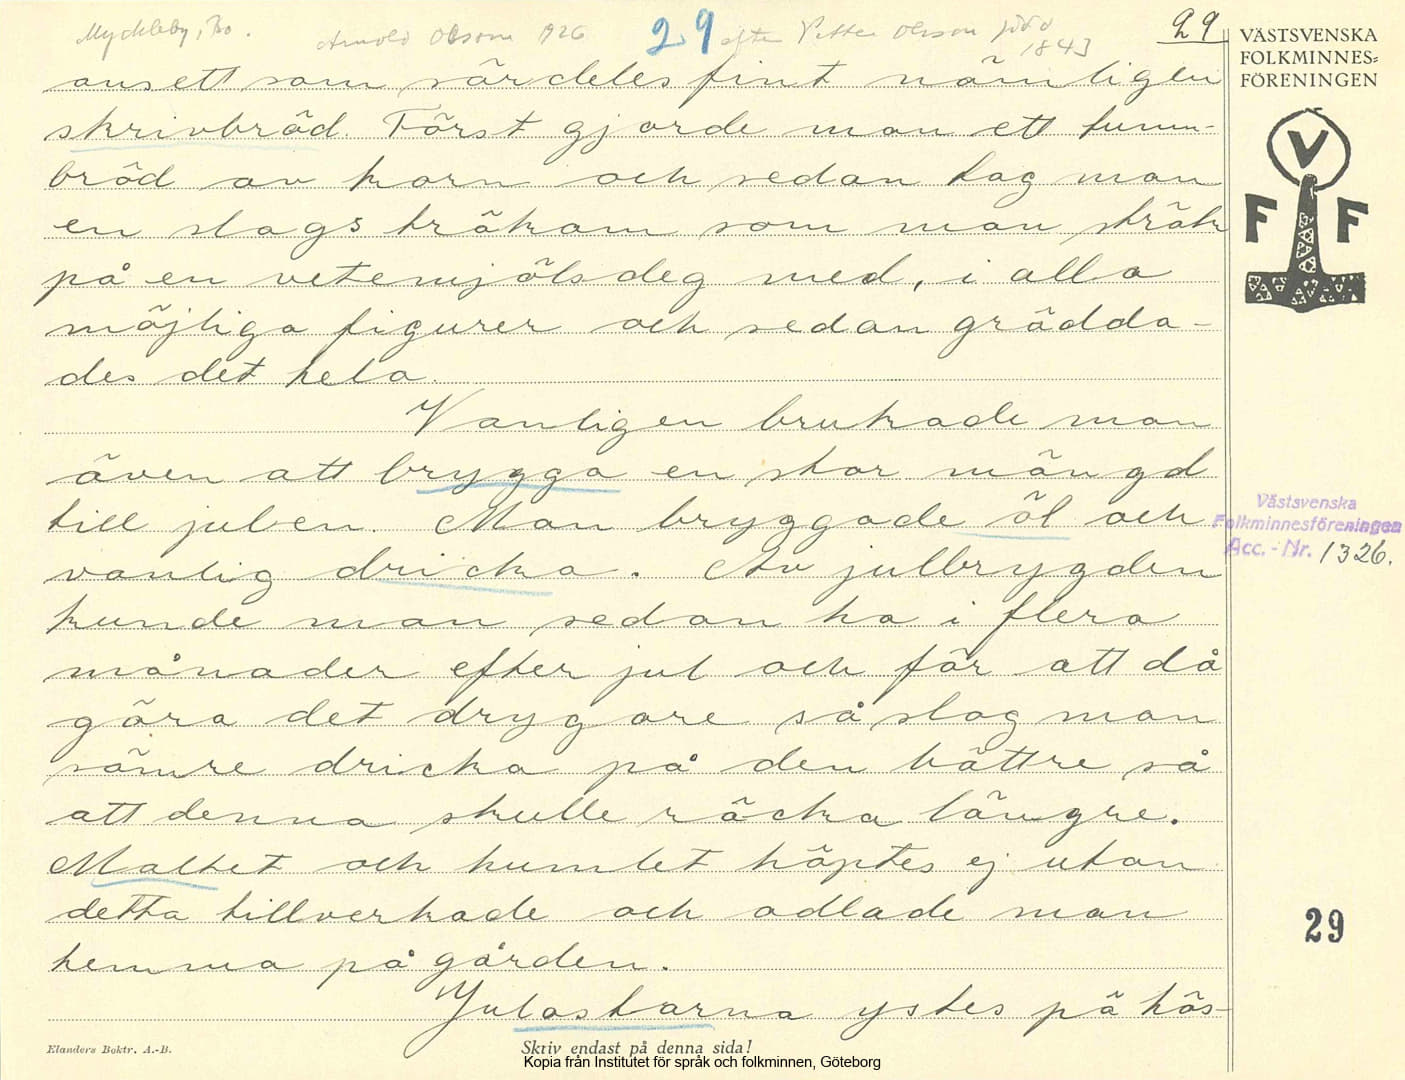 Myckleby, Bo.
Arnold Olsson 1926
29
efter Petter Olsson född
1843
29
VÄSTSVENSKA
FOLKMINNES=
FÖRENINGEN
V
F F
ansett som särdeles fint nämligen
skrivbröd. Först gjorde man ett tunn-
bröd av korn och sedan tog man
en slags träkam som man sträk
på en vetemjölsdeg med, i alla
möjliga figurer och sedan grädda-
des det hela.
Vanligen brukade man
även att brygga en stor mängd
till julen. Man bryggade öl och
vanlig dricka. Av julbrygden
kunde man sedan ha i flera
månader efter jul och för att då
göra det drygare så slog man
sämre dricka på den bättre så
att denna skulle räcka längre.
Maltet och humlet köptes ej utan
detta tillverkade och odlade man
hemma på gården.
Julostarna ystes på hös-
Västsvenska
Folkminnesföreningen
Acc. - Nr. 1326.
29
Elanders Boktr. A.-B.
Skriv endast på denna sida!
Kopia från Institutet för språk och folkminnen, Göteborg